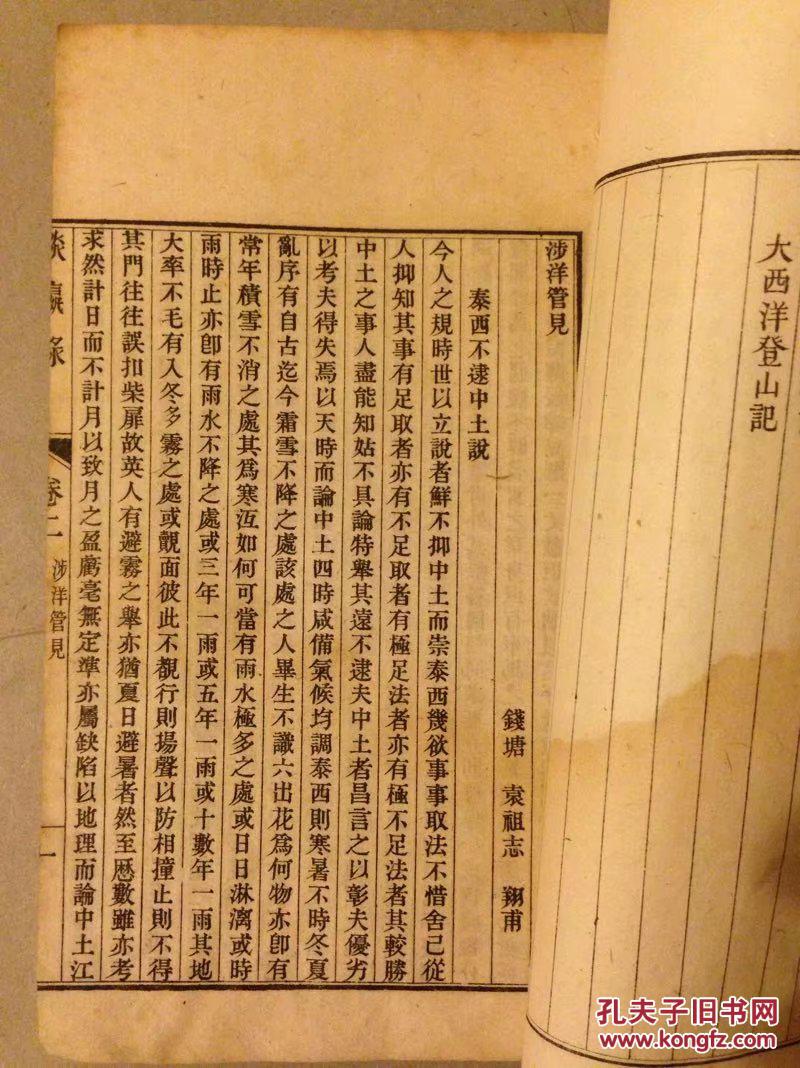 大西洋登山記
涉洋管見
錢塘 袁祖志 翔甫
泰西不逮中土說
今人之規時世以立說者鮮不抑中土而崇泰西幾欲事事取法不惜舍己從
人抑知其事有足取者亦有不足取者有極足法者亦有極不足法者其較勝
中土之事人盡能知姑不具論特舉其遠不逮夫中土者昌言之以彰夫優劣
以考夫得失焉以天時而論中土四時咸備氣候均調泰西則寒暑不時冬夏
亂序有自古迄今霜雪不降之處該處之人畢生不識六出花爲何物亦卽有
常年積雪不消之處其爲寒沍如何可當有雨水極多之處或日日淋漓或時
雨時止亦卽有雨水不降之處或三年一雨或五年一雨或十數年一雨其地
大率不毛有入冬多霧之處或覿面彼此不覩行則揚聲以防相撞止則不得
其門往往誤扣柴扉故英人有避霧之舉亦猶夏日避暑者然至厯數雖亦考
求然計日而不計月以致月之盈虧毫無定準亦屬缺陷以地理而論中土江
談瀛录 卷二 涉洋管見 一
孔夫子旧书网
www.kongfz.com